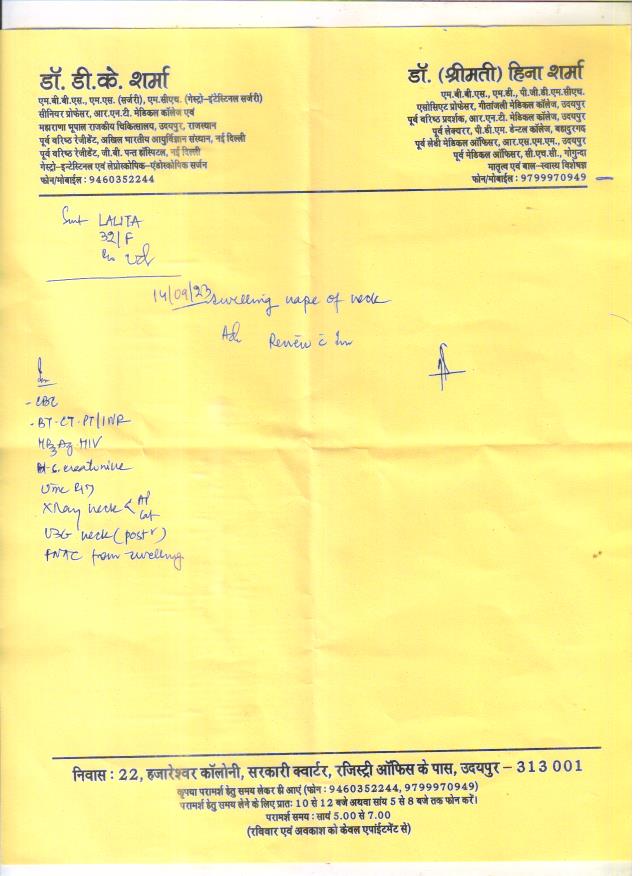 डॉ. डी.के. शर्मा
एम.बी.बी.एस., एम.एस. (सर्जरी), एम.सीएच. (गेस्ट्रो-इंटेस्टिनल सर्जरी)
सीनियर प्रोफेसर, आर.एन.टी. मेडिकल कॉलेज एवं
महाराणा भूपाल राजकीय चिकित्सालय, उदयपुर, राजस्थान
पूर्व वरिष्ठ रेजीडेंट, अखिल भारतीय आयुर्विज्ञान संस्थान, नई दिल्ली
पूर्व वरिष्ठ रेजीडेंट, जी.बी. पन्त हॉस्पिटल, नई दिल्ली
गेस्ट्रो-इन्टेस्टिनल एवं लेप्रोस्कोपिक-एंडोस्कोपिक सर्जन
फोन/मोबाईल : 9460352244
डॉ. (श्रीमती) हिना शर्मा
एम.बी.बी.एस., एम.डी., पी.जी.डी.एम.सीएच.
एसोसिएट प्रोफेसर, गीतांजली मेडिकल कॉलेज, उदयपुर
पूर्व वरिष्ठ प्रदर्शक, आर.एन.टी. मेडिकल कॉलेज, उदयपुर
पूर्व लेक्चरर, पी.डी.एम. डेन्टल कॉलेज, बहादुरगढ़
पूर्व लेडी मेडिकल ऑफिसर, आर.एस.एम.एम., उदयपुर
पूर्व मेडिकल ऑफिसर, सी.एच.सी., गोगुन्दा
मातृत्व एवं बाल-स्वास्थ्य विशेषज्ञ
फोन/मोबाईल : 9799970949
Smt LALITA
32/F
14/09/23 swelling nape of neck
Adv Review c̄ Inv
Inv
- CBC
- BT-CT-PT/INR
HBsAg HIV
S. creatinine
Urine
XRay neck < AP Lat
USG neck (postr)
FNAC from swelling
निवास : 22, हजारेश्वर कॉलोनी, सरकारी क्वार्टर, रजिस्ट्री ऑफिस के पास, उदयपुर – 313 001
कृपया परामर्श हेतु समय लेकर ही आएं (फोन : 9460352244, 9799970949)
परामर्श हेतु समय लेने के लिए प्रातः 10 से 12 बजे अथवा सायं 5 से 8 बजे तक फोन करें।
परामर्श समय : सायं 5.00 से 7.00
(रविवार एवं अवकाश को केवल एपांईटमेंट से)